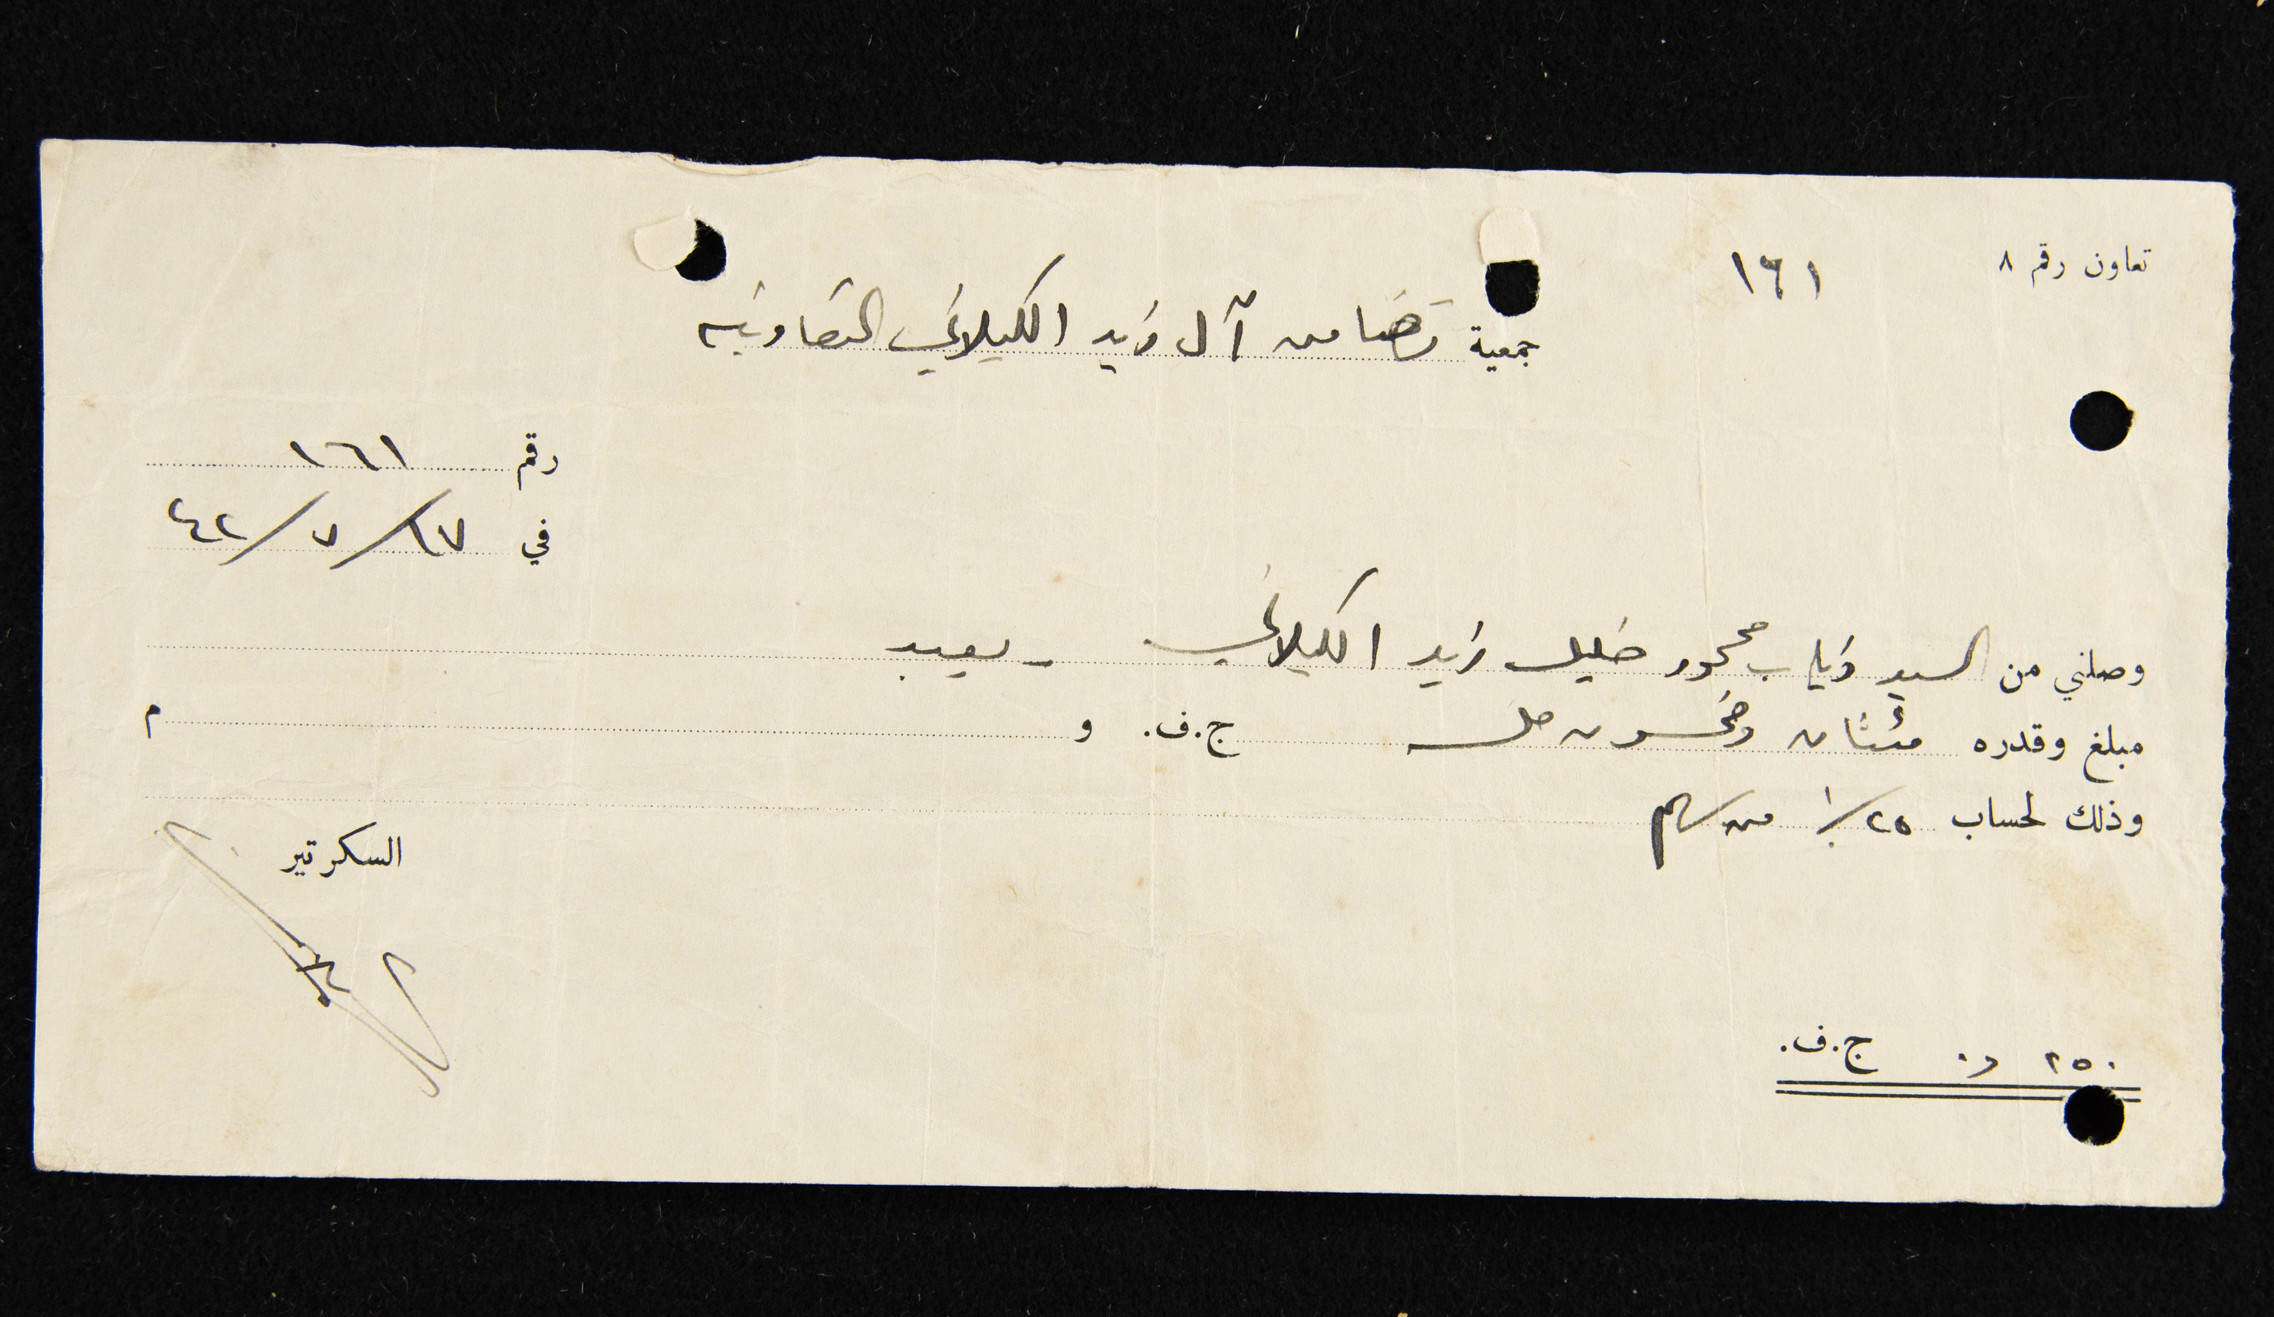 تعاون رقم ٨
١٦١
جمعية تضامن آل زيد الكيلاني التعاونية
رقم ١٦١
في ١٧/٧/٤٢
وصلني من السيد ذياب محمود خليل زيد الكيلاني - يعبد
مبلغ وقدره مئتان وخمسون مل ج.ف. و م
وذلك لحساب ٢٥٪ من سهم
السكرتير
٢٥٠ ٠ر ج.ف.